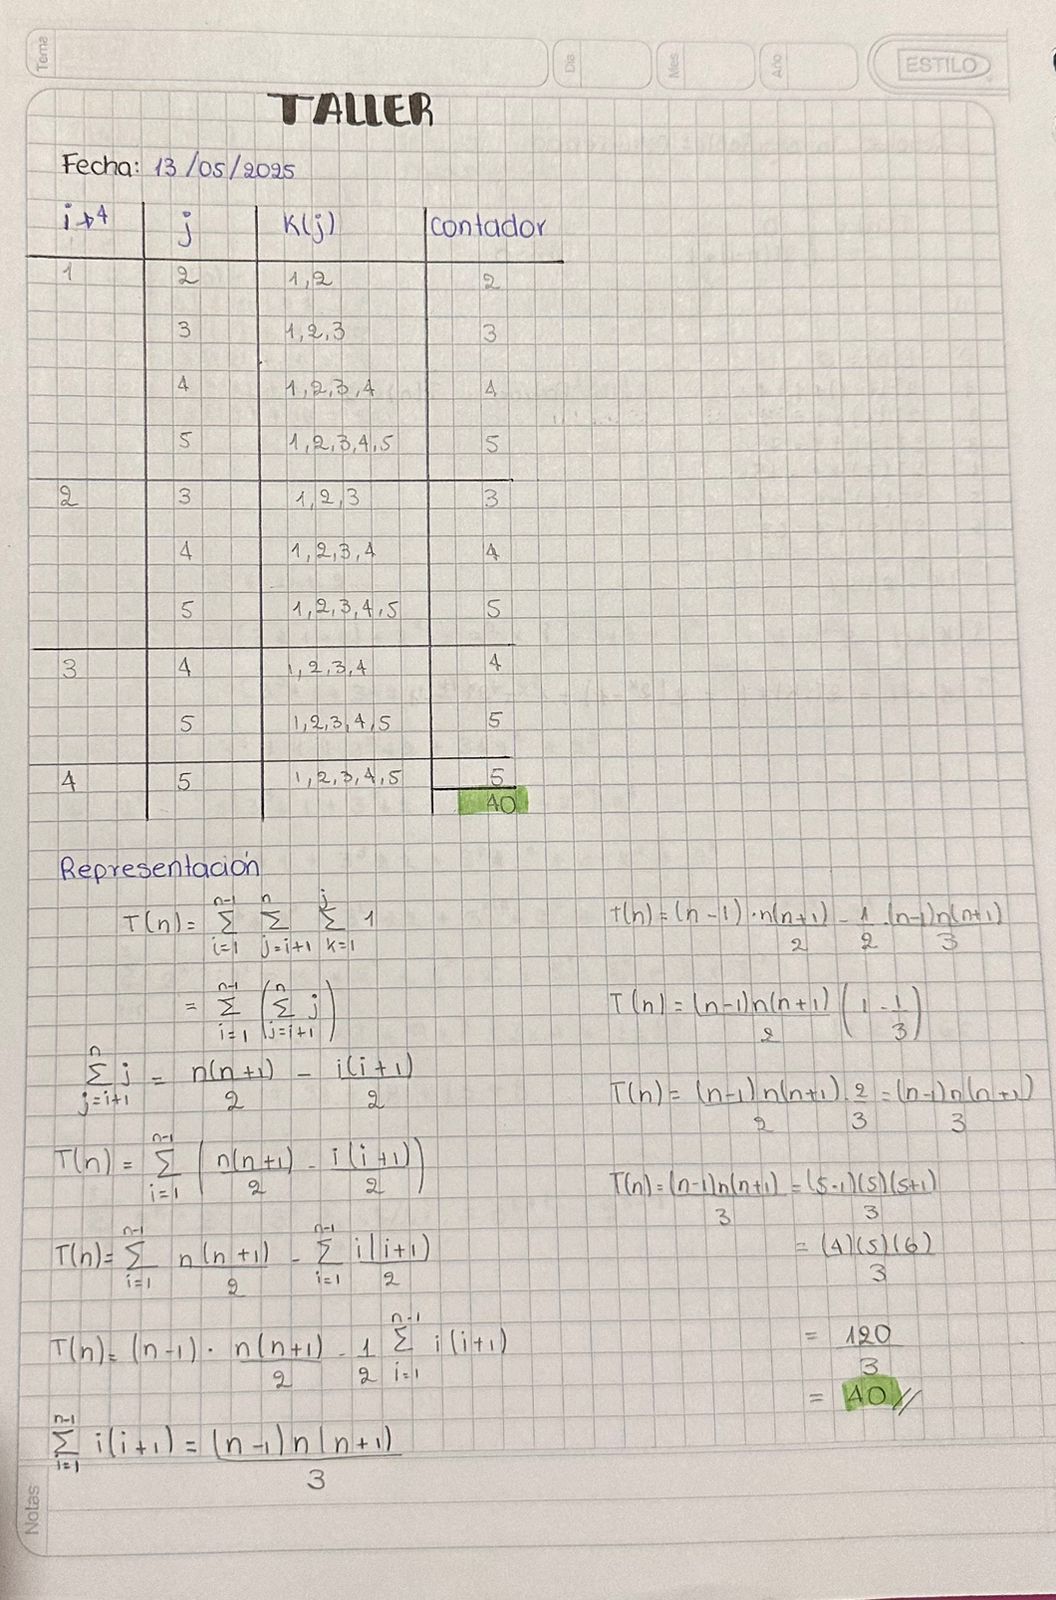 Tema
Dia
Mes
Año
ESTILO
TALLER
Fecha: 13/05/2025
i→4 j K(j) contador
1 2 1,2 2
3 1,2,3 3
4 1,2,3,4 4
5 1,2,3,4,5 5
2 3 1,2,3 3
4 1,2,3,4 4
5 1,2,3,4,5 5
3 4 1,2,3,4 4
5 1,2,3,4,5 5
4 5 1,2,3,4,5 5
40
Representación
T(n) = ∑_{i=1}^{n-1} ∑_{j=i+1}^{n} ∑_{k=1}^{j} 1
= ∑_{i=1}^{n-1} (∑_{j=i+1}^{n} j)
∑_{j=i+1}^{n} j = n(n+1)/2 - i(i+1)/2
T(n) = ∑_{i=1}^{n-1} (n(n+1)/2 - i(i+1)/2)
T(n) = ∑_{i=1}^{n-1} n(n+1)/2 - ∑_{i=1}^{n-1} i(i+1)/2
T(n) = (n-1) · n(n+1)/2 - 1/2 ∑_{i=1}^{n-1} i(i+1)
∑_{i=1}^{n-1} i(i+1) = (n-1)n(n+1)/3
T(n) = (n-1) · n(n+1)/2 - 1/2 · (n-1)n(n+1)/3
T(n) = (n-1)n(n+1)/2 (1 - 1/3)
T(n) = (n-1)n(n+1)/2 · 2/3 = (n-1)n(n+1)/3
T(n) = (n-1)n(n+1)/3 = (5-1)(5)(5+1)/3
= (4)(5)(6)/3
= 120/3
= 40//
Notas